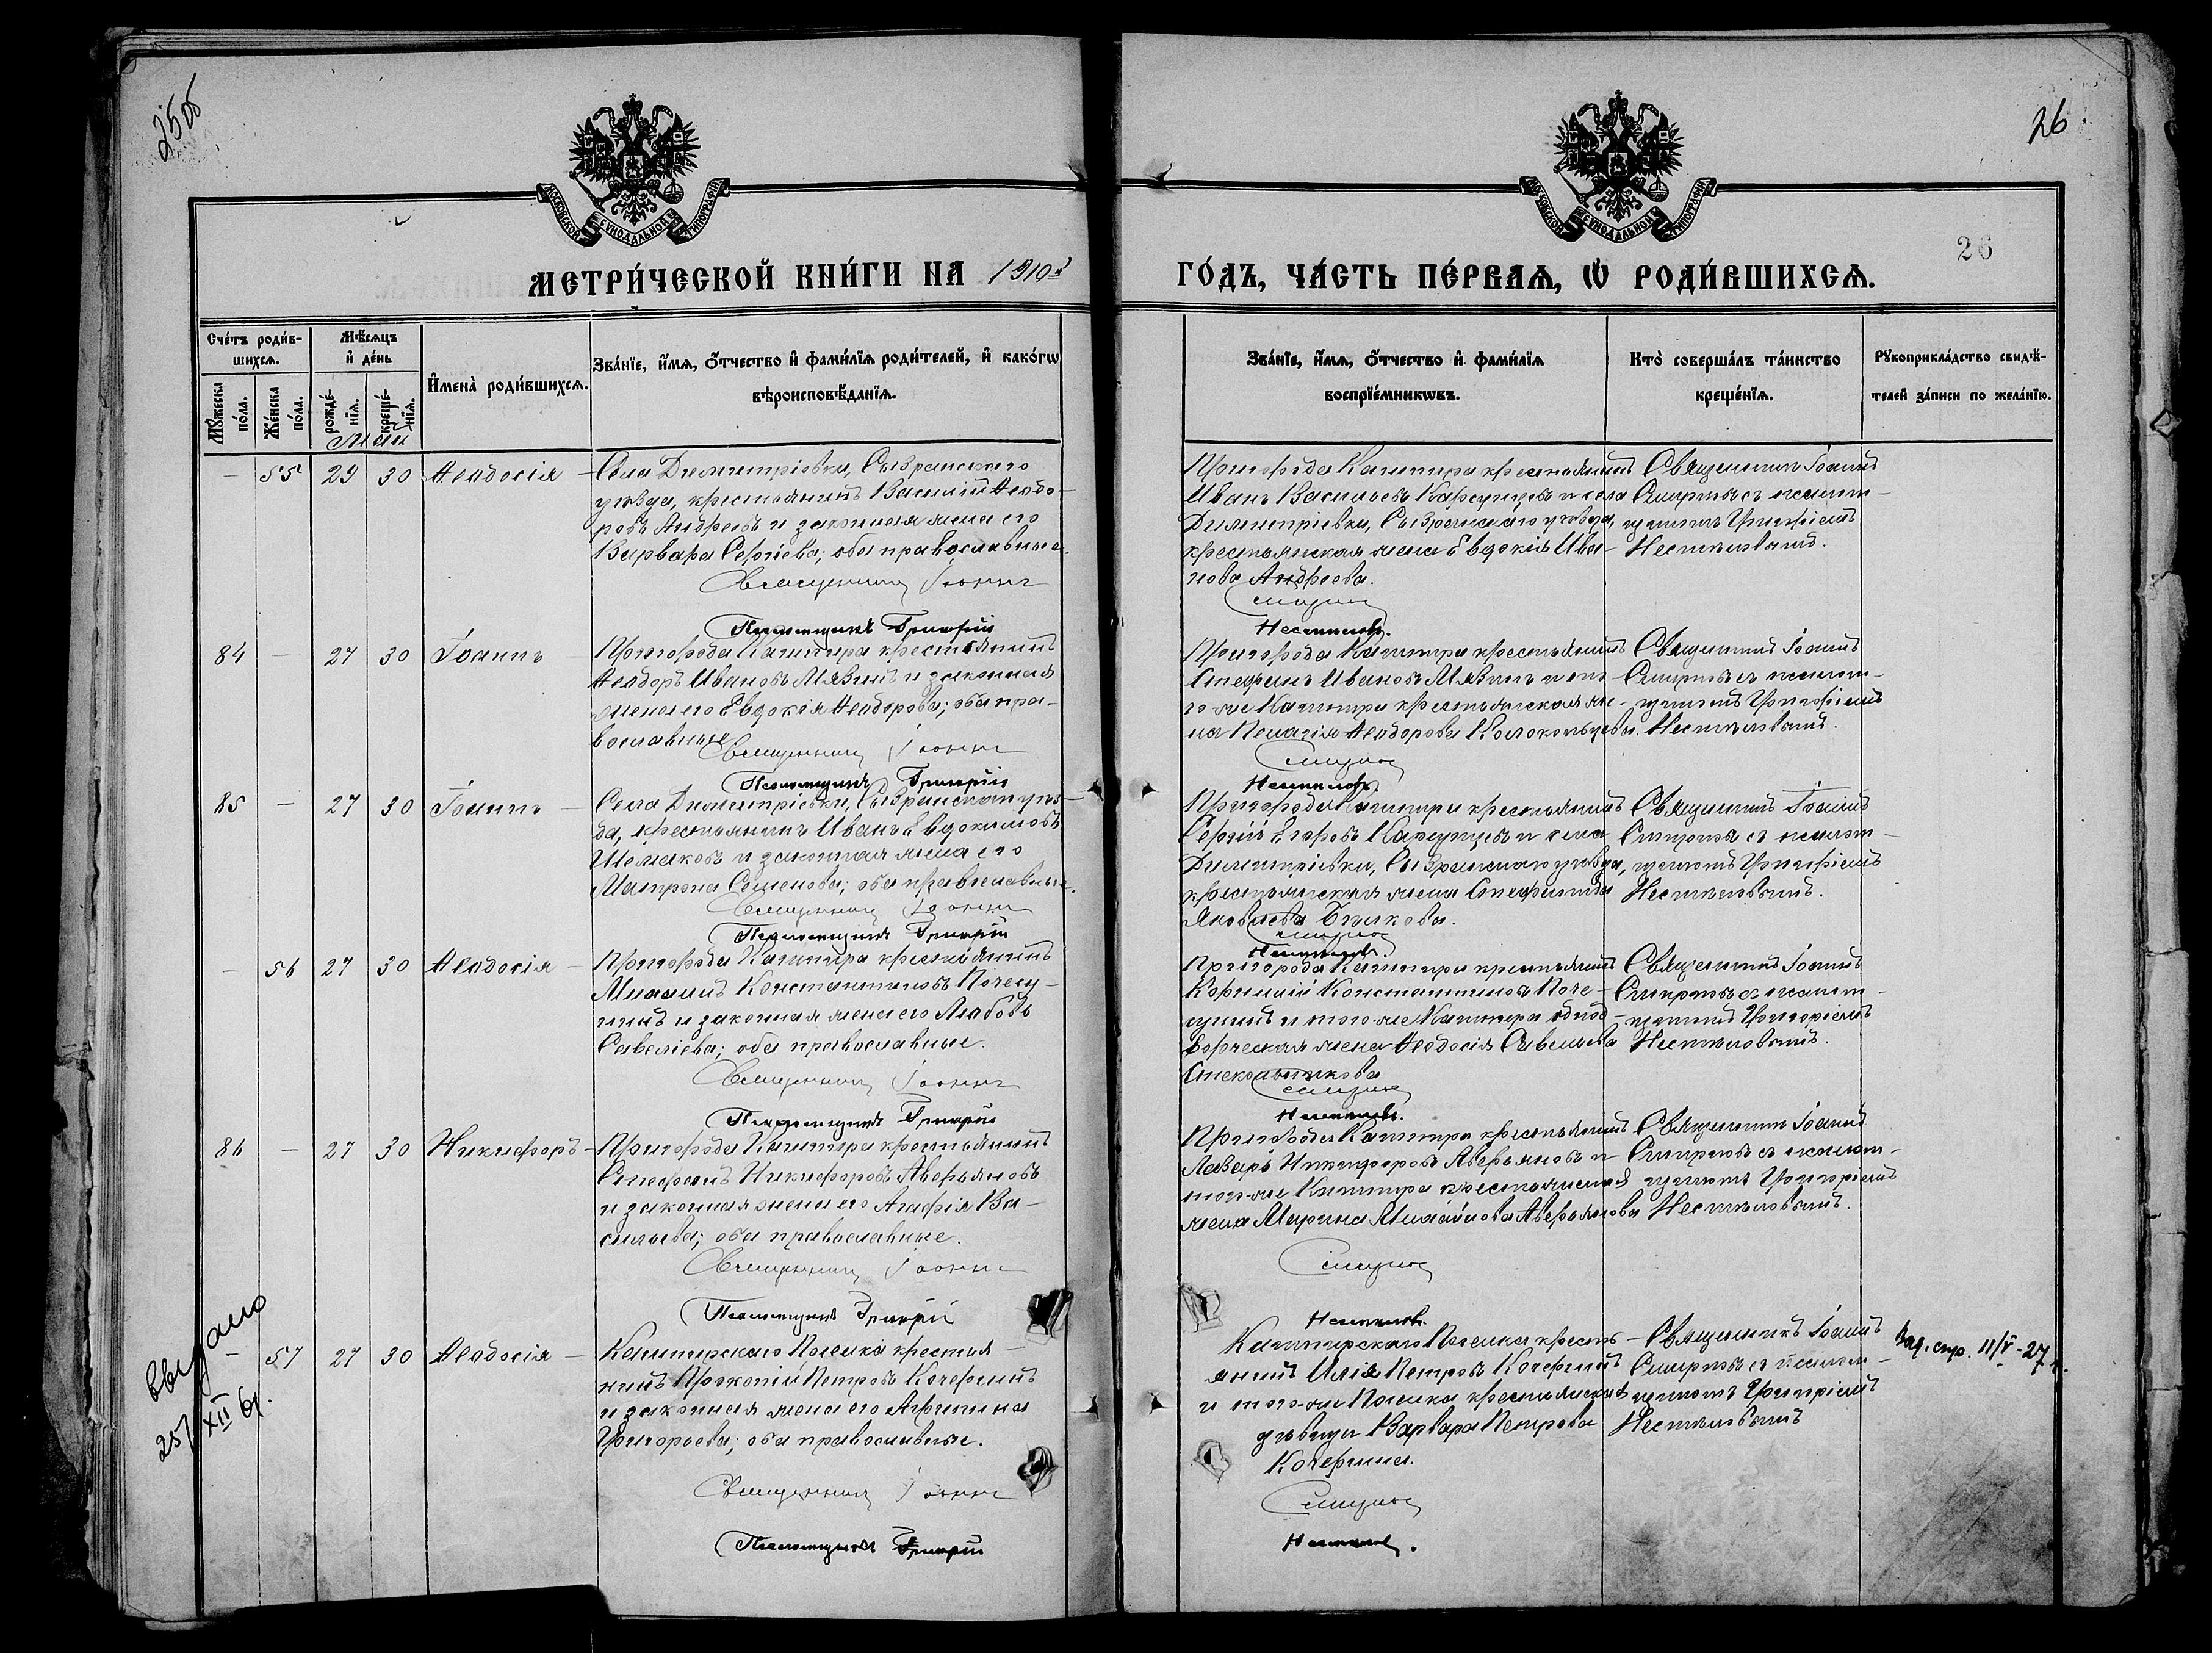 25об
26
МОСКОВСКОЙ СѴНОДАЛЬНОЙ ТИПОГРАФІИ
МОСКОВСКОЙ СѴНОДАЛЬНОЙ ТИПОГРАФІИ
26
МЕТРИ́ЧЕСКОЙ КНИ́ГИ НА 1910й
ГО́ДЪ, ЧА́СТЬ ПЕ́РВАѦ, Ѡ҆ РОДИ́ВШИХСѦ.
Сче́тъ роди́в-
шихсѧ.
Мꙋ́жеска по́ла.
Же́нска по́ла.
Мѣ́сѧцъ
и҆ де́нь
рожде́-
нїѧ.
креще́-
нїѧ.
И҆мена̀ роди́вшихсѧ.
Зва́нїе, и҆́мѧ, ѻ҆́тчество и҆ фами́лїѧ роди́телей, и҆ како́гѡ
вѣроисповѣ́данїѧ.
Зва́нїе, и҆́мѧ, ѻ҆́тчество и҆ фами́лїѧ
воспрїе́мникѡвъ.
Кто̀ соверша́лъ та́инство
креще́нїѧ.
Рꙋкоприкла́дство свидѣ́-
телей за́писи по жела́нїю.
Май
— 55 29 30 Ѳеодосія —
Села Димитріевки, Сызранскаго
уѣзда, крестьянинъ Василій Ѳеодо-
ровъ Андреевъ и законная жена его
Варвара Сергіева; оба православные.
Священникъ Іоаннъ
Псаломщикъ Григорій
Пригорода Кашпира крестьянинъ
Иванъ Васильевъ Карсунцевъ и села
Димитріевки, Сызранскаго уѣзда,
крестьянская жена Евдокія Ива-
нова Андреева.
Смирнов
Нестеловъ.
Священникъ Іоаннъ
Смирновъ съ псалом-
щикомъ Григоріемъ
84 — 27 30 Іоаннъ —
Пригорода Кашпира крестьянинъ
Ѳеодоръ Ивановъ Мязинъ и законная
жена его Евдокія Ѳеодорова; оба пра-
вославные
Священникъ Іоаннъ
Псаломщикъ Григорій
Пригорода Кашпира крестьянинъ
Стефанъ Ивановъ Мязинъ и то-
го-же Кашпира крестьянская же-
на Пелагія Ѳеодорова Колокольцева.
Смирнов
Священникъ Іоаннъ
Смирновъ съ псалом-
щикомъ Григоріемъ
85 — 27 30 Іоаннъ —
Села Димитріевки, Сызранскаго уѣз-
да, крестьянинъ Иванъ Евдокимовъ
Шемаковъ и законная жена его
Матрона Семенова; оба православные.
Священникъ Іоаннъ
Псаломщикъ Григорій
Пригорода Кашпира крестьянинъ
Сергій Егоровъ Карсунцевъ и села
Димитріевки, Сызранскаго уѣзда,
крестьянская жена Стефанида
Яковлева Бычкова.
Смирнов
Священникъ Іоаннъ
Смирновъ съ псалом-
щикомъ Григоріемъ
— 56 27 30 Ѳеодосія —
Пригорода Кашпира крестьянинъ
Михаилъ Константиновъ
и законная жена его Любовь
Савеліева; оба православные.
Священникъ Іоаннъ
Псаломщикъ Григорій
Пригорода Кашпира крестьянинъ
Корнилій Константиновъ
и того-же Кашпира однод-
ворческая жена Ѳеодосія Савельева
Стекольникова
Смирнов
Священникъ Іоаннъ
Смирновъ съ псалом-
щикомъ Григоріемъ
86 — 27 30 Никифоръ —
Пригорода Кашпира крестьянинъ
Стефанъ Никифоровъ Аверьяновъ
и законная жена его Агафія Ва-
сильева; оба православные.
Священникъ Іоаннъ
Псаломщикъ Григорій
Пригорода Кашпира крестьянинъ
Лазарь Никифоровъ Аверьяновъ и
того-же Кашпира крестьянская
жена Марина Михайлова Аверьянова
Смирнов
Священникъ Іоаннъ
Смирновъ съ псалом-
щикомъ Григоріемъ
выдано
25/XII 61.
— 57 27 30 Ѳеодосія —
Кашпирскаго Поселка крестья-
нинъ Прокопій Петровъ Кочергинъ
и законная жена его Агриппина
Григорьева; оба православные.
Священникъ Іоаннъ
Псаломщикъ Григорій
Кашпирскаго Поселка кресть-
янинъ Илія Петровъ Кочергинъ
и того-же Поселка крестьянская
дѣвица Варвара Петрова
Кочергина.
Смирнов
Священникъ Іоаннъ
Смирновъ съ псалом-
щикомъ Григоріемъ
11/V-27